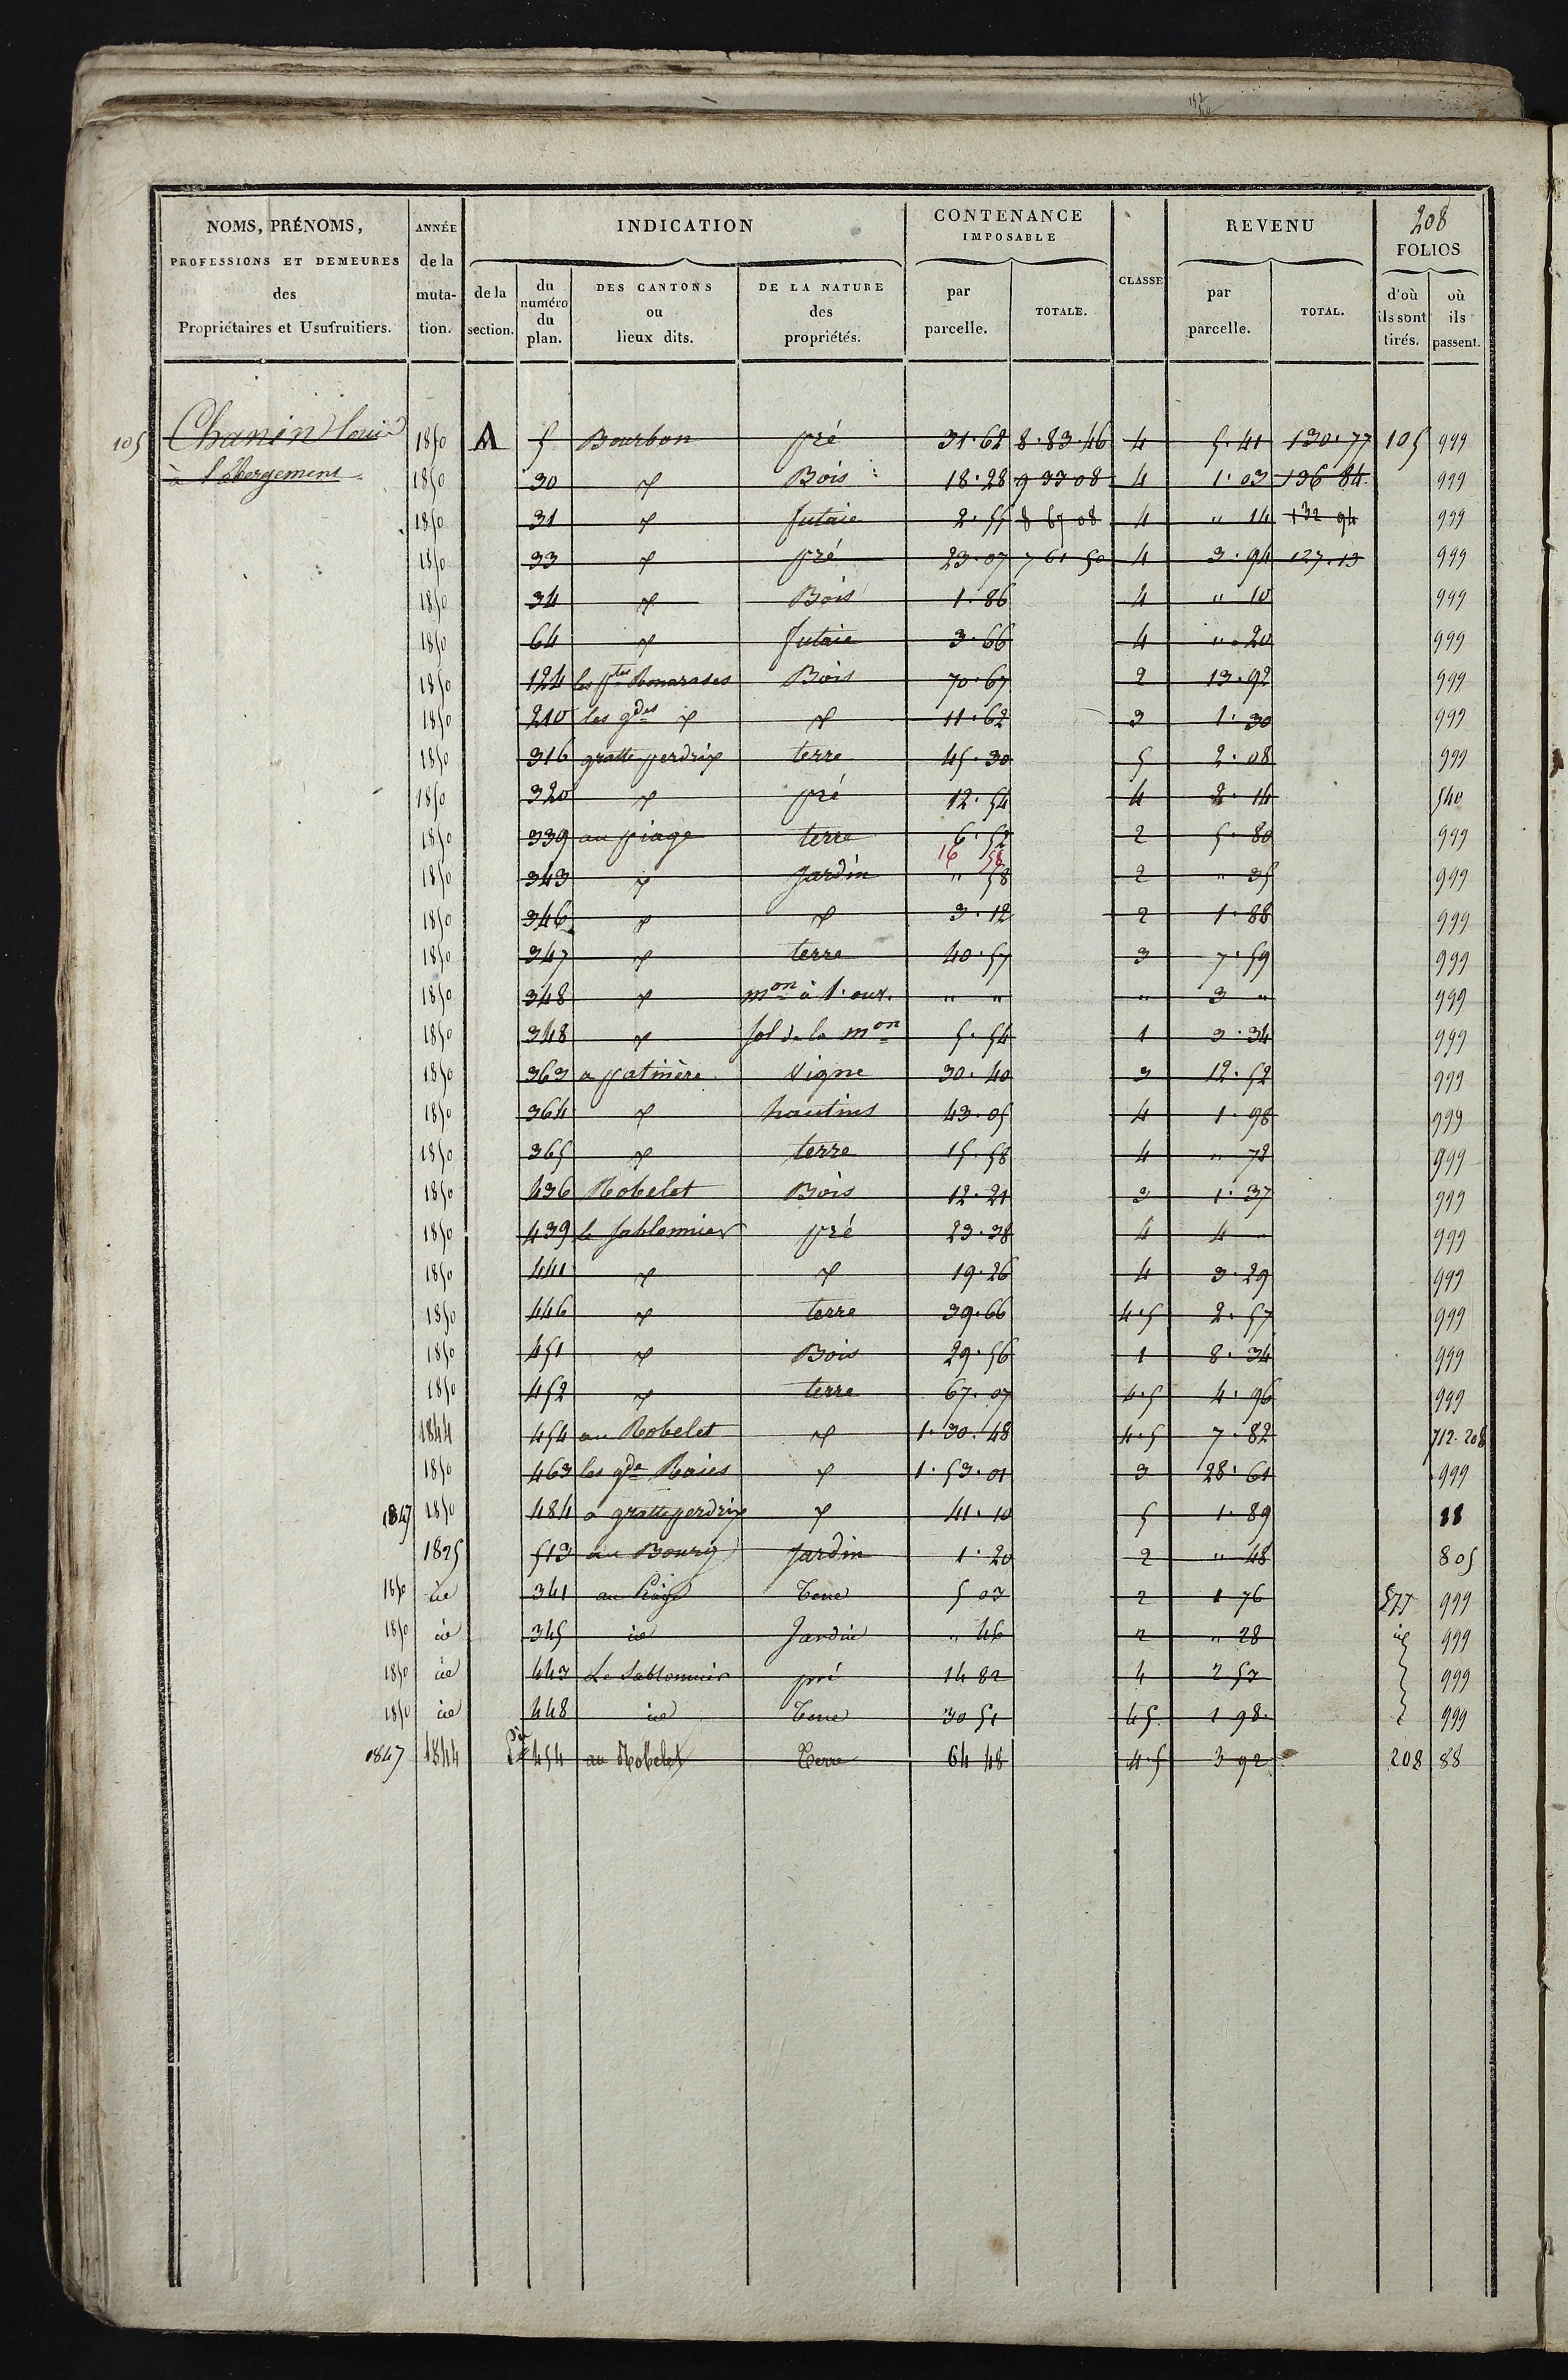 208
NOMS, PRÉNOMS, PROFESSIONS ET DEMEURES des Propriétaires et Usufruitiers.
ANNÉE de la muta- tion.
INDICATION
de la section.
du numéro du plan.
DES CANTONS ou lieux dits.
DE LA NATURE des propriétés.
CONTENANCE IMPOSABLE
par parcelle.
TOTALE.
CLASSE
REVENU
par parcelle.
TOTAL.
FOLIOS
d'où ils sont tirés.
où ils passent.
105 Chanin louis 1850 A 5 Bourbon pré 31.62 8.83.46 4 5.41 130.77 105 999
à l'abergement 1850 30 " Bois 18.28 9 33 08 4 1.03 136 84 999
1850 31 " futaie 2.55 8 67 08 4 " 14 132 94 999
1850 33 " pré 23.07 7 61 50 4 3.94 127.13 999
1850 34 " Bois 1.86 4 " 10 999
1850 64 " futaie 3.66 4 " 20 999
1850 124 les ptes Bois 70.67 2 13.92 999
1850 210 les gdes " " 11.62 3 1.30 999
1850 316 gratte perdrix terre 45.30 5 2.08 999
1850 320 " pré 12.54 4 2.14 540
1850 339 au piage terre 6.52 2 5.80 999
16 58
1850 343 " Jardin " 58 2 " 35 999
1850 346 " " 3.12 2 1.88 999
1850 347 " terre 40.57 3 7.59 999
1850 348 " mon à 1. ouv. " " " 3 " 999
1850 348 " sol de la mon 5.54 1 3.34 999
1850 363 a patinère Vigne 30.40 3 12.52 999
1850 364 " hautins 43.05 4 1.98 999
1850 365 " terre 15.58 4 " 72 999
1850 436 Robelet Bois 12.21 3 1.37 999
1850 439 le sablonnier pré 23.38 4 4 - 999
1850 441 " " 19.26 4 3.29 999
1850 446 " terre 39.66 4.5 2.57 999
1850 451 " Bois 29.56 1 8.34 999
1850 452 " terre 67.07 4.5 4.96 999
1844 454 au Robelet " 1.30.48 4.5 7.82 712.208
1850 463 les gde Raies " 1.53.01 3 28.61 999
1847 1850 484 a gratteperdrix " 41.10 5 1.89 88
1825 513 au Bourg Jardin 1.20 2 " 48 805
1850 id 341 au Piage Terre 5 03 2 1 76 577 999
1850 id 345 id Jardin " 46 2 " 28 id 999
1850 id 443 Le Sablonnier pré 14 82 4 2 53 999
1850 id 448 id Terre 30 51 4 5 1 98 999
1847 1844 454 au Robelet Terre 64 48 4.5 3 92 208 88